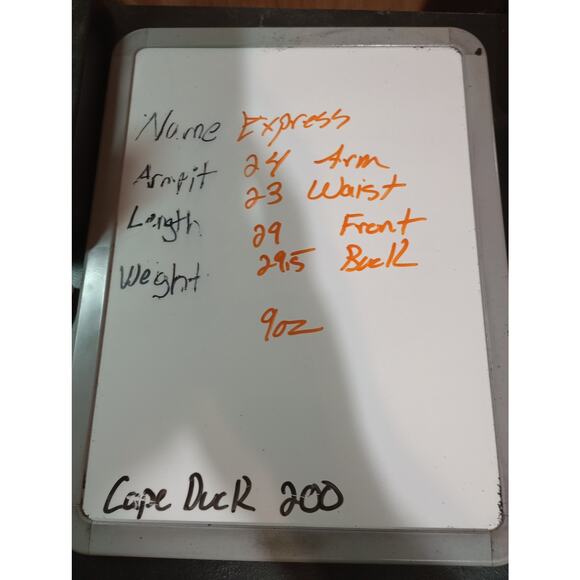 Name Express
Armpit 24 Arm
23 Waist
Length 29 Front
29.5 Back
Weight 9oz
Cape Duck 200